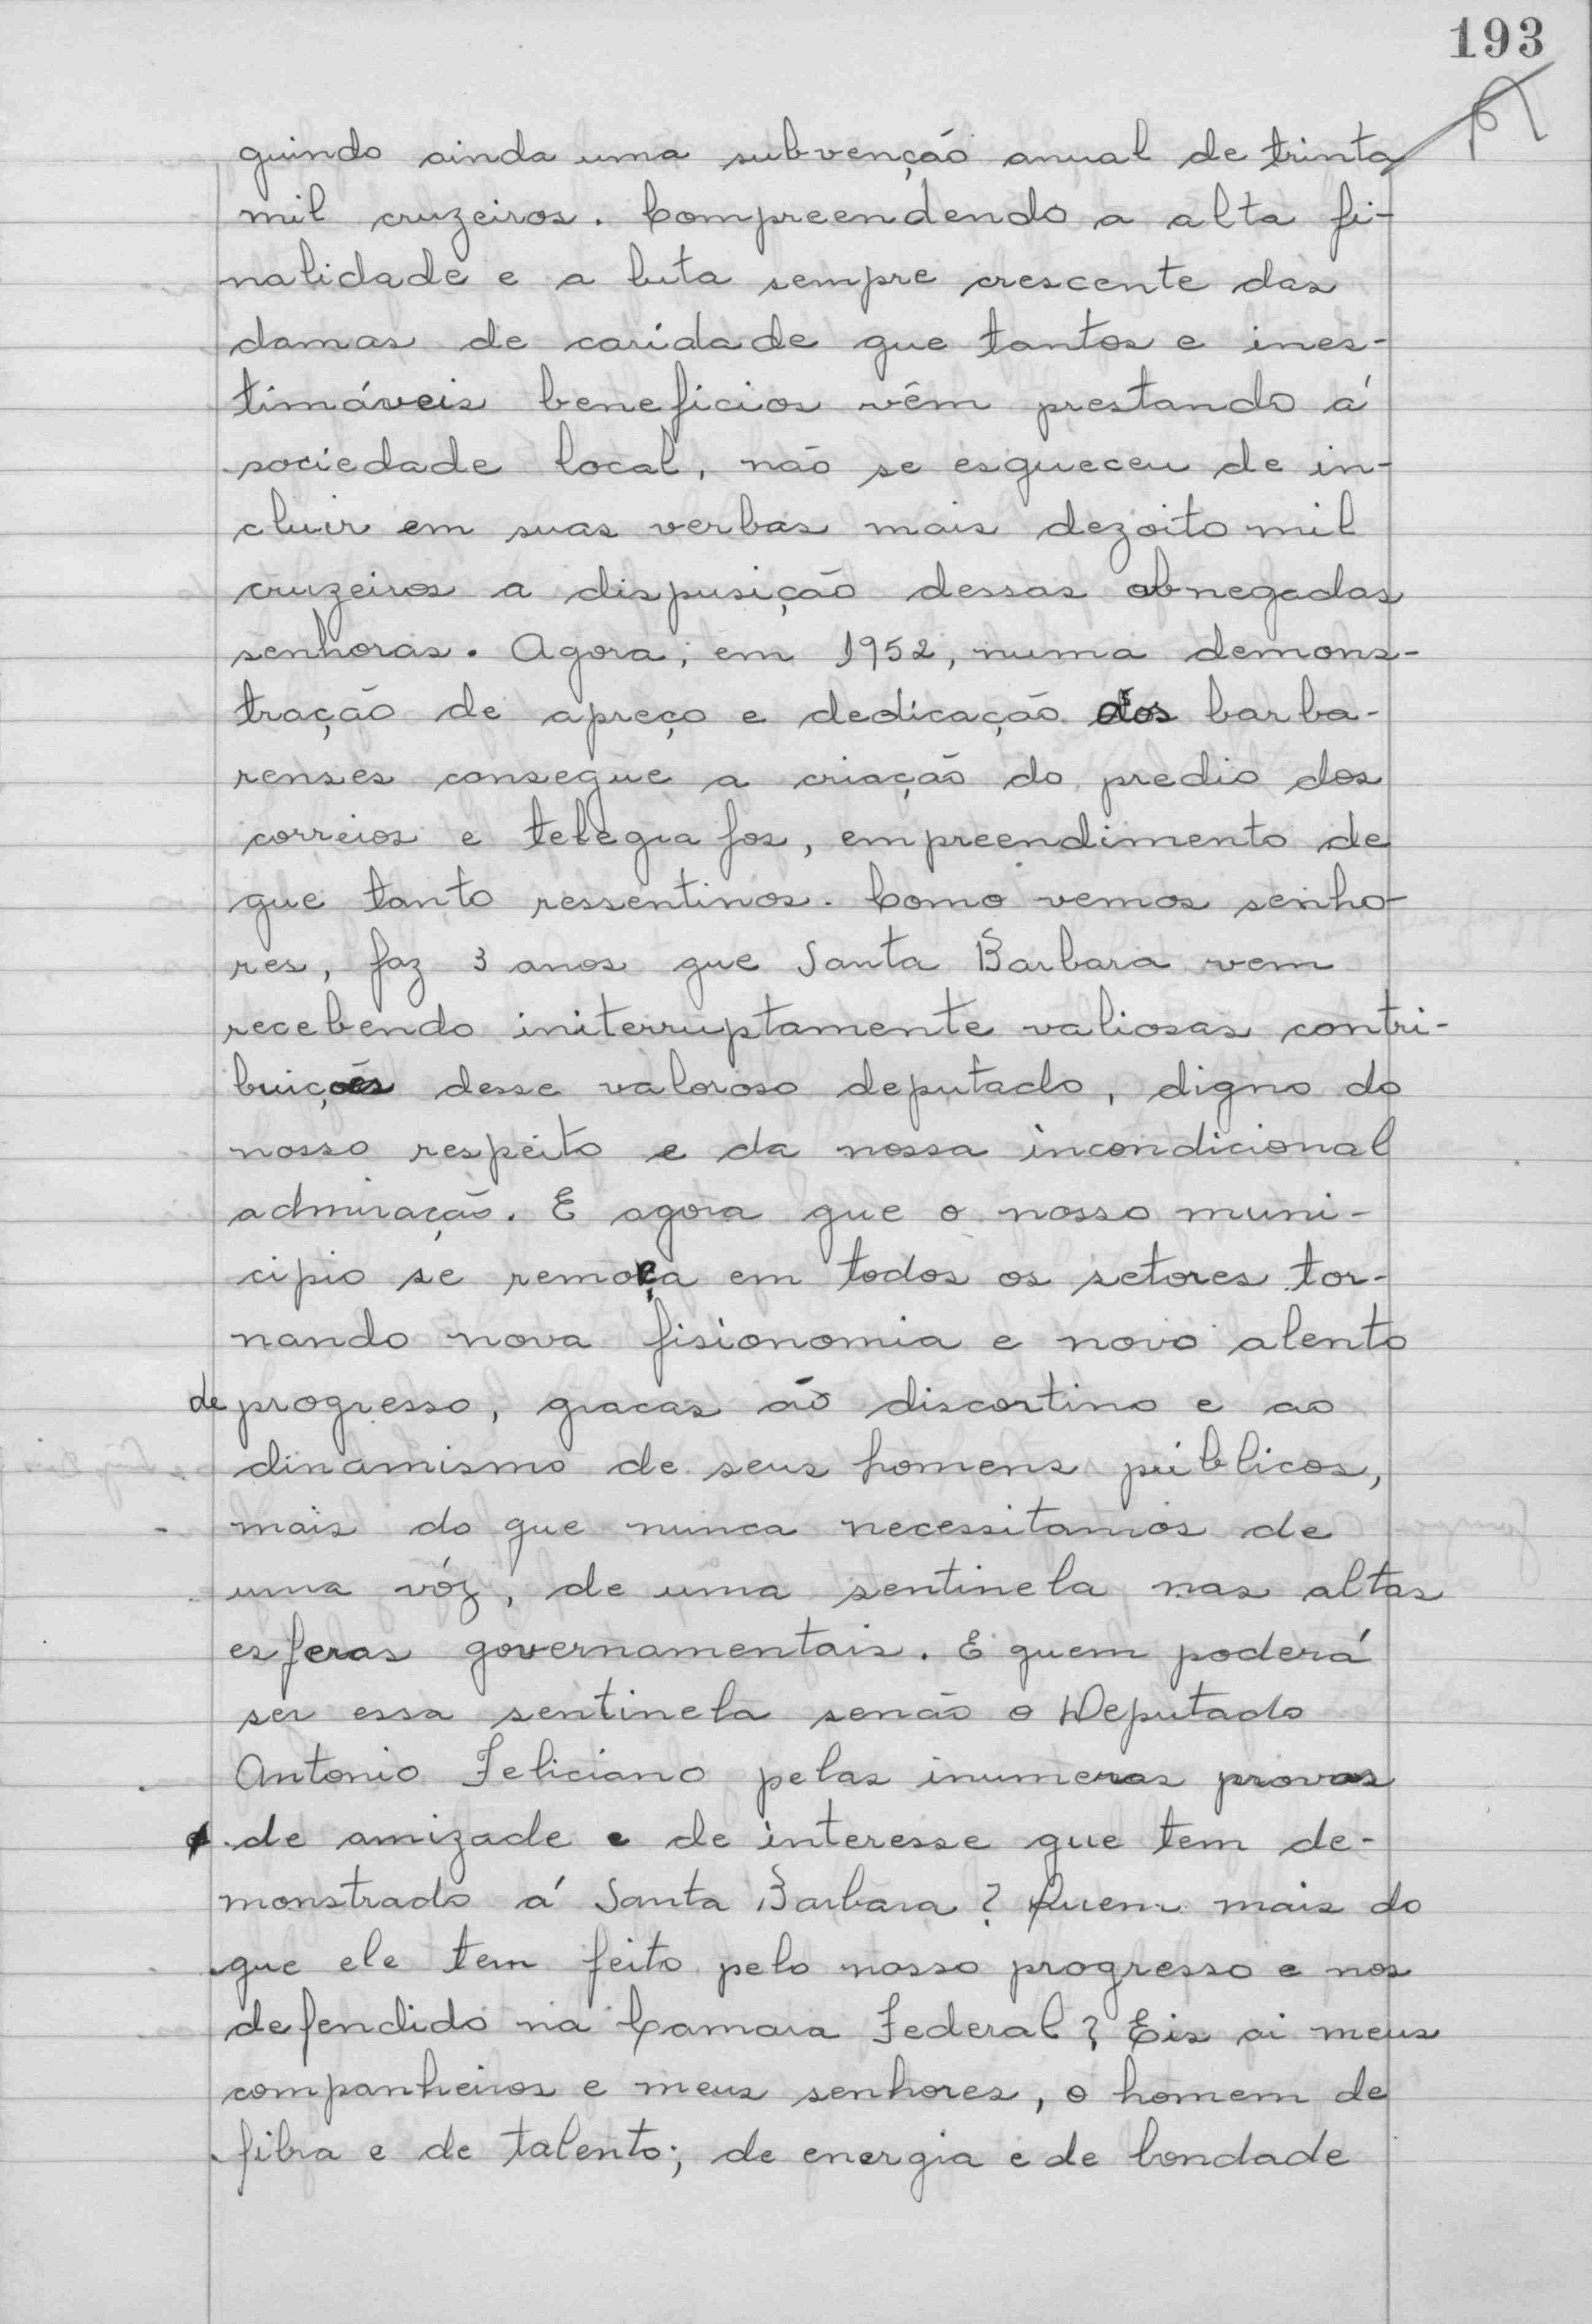 193
guindo ainda uma subvenção anual de trinta
mil cruzeiros. Compreendendo a alta fi-
nalidade e a luta sempre crescente das
damas de caridade que tantos e ines-
timáveis beneficios vêm prestando á
sociedade local, não se esqueceu de in-
cluir em suas verbas mais dezoito mil
cruzeiros a dispusição dessas abnegadas
senhoras. Agora, em 1952, numa demons-
tração de apreço e dedicação aos barba-
renses consegue a criação do predio dos
correios e telegrafos, empreendimento de
que tanto ressentinos. Como vemos senho-
res, faz 3 anos que Santa Barbara vem
recebendo initerruptamente valiosas contri-
buições desse valoroso deputado, digno do
nosso respeito e da nossa incondicional
admiração. E agora que o nosso muni-
cipio se remoça em todos os setores tor-
nando nova fisionomia e novo alento
de progresso, gracas ao discortino e ao
dinamismo de seus homens públicos,
mais do que nunca necessitamos de
uma vóz, de uma sentinela nas altas
esferas governamentais. E quem poderá
ser essa sentinela senão o Deputado
Antonio Feliciano pelas inumeras provas
de amizade e de interesse que tem de-
monstrado á Santa Barbara? Quem mais do
que ele tem feito pelo nosso progresso e nos
defendido na Camara Federal? Eis ai meus
companheiros e meus senhores, o homem de
fibra e de talento; de energia e de bondade